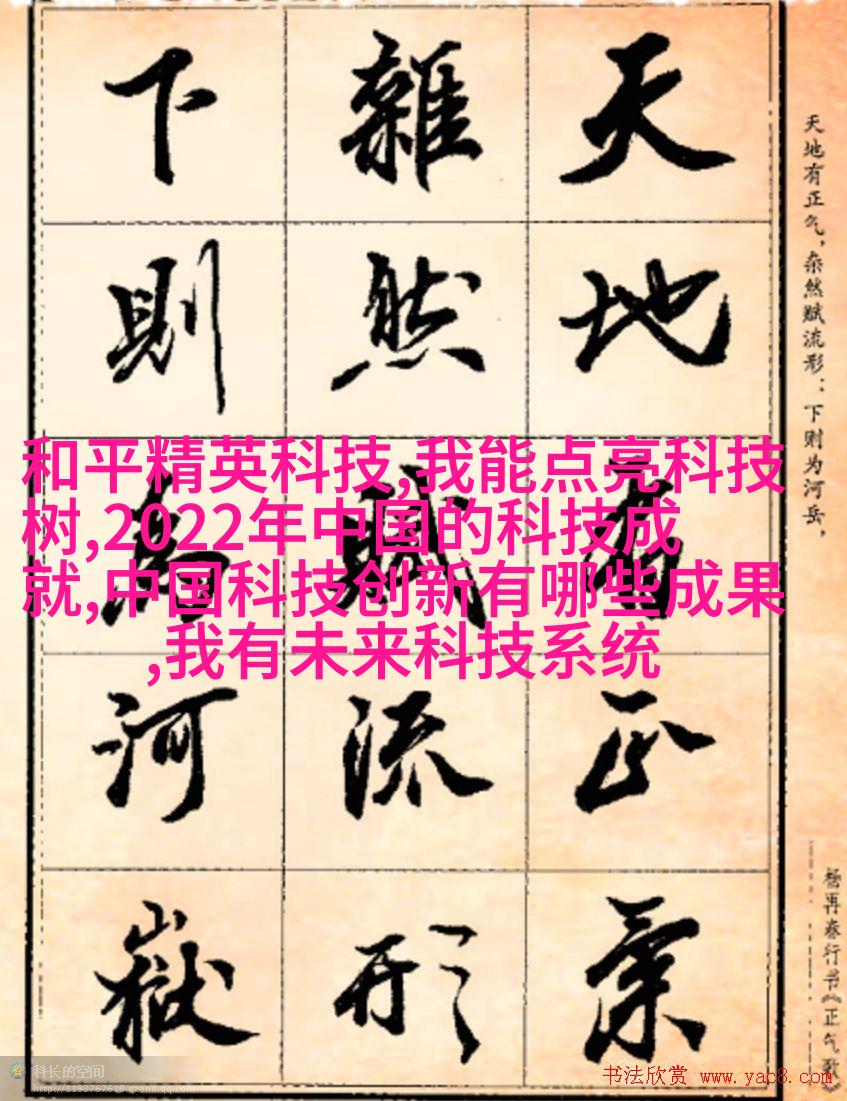 天地有正气
雜然賦流形
下則為河嶽
天地有正气，杂然赋流形：下则为河岳，
杨再春行书《正气歌》
和平精英科技,我能点亮科技
树,2022年中国的科技成
就,中国科技创新有哪些成果
,我有未来科技系统
科长的空间
http://1193767618.qzone.qq.com
书法欣赏 www.yac8.com